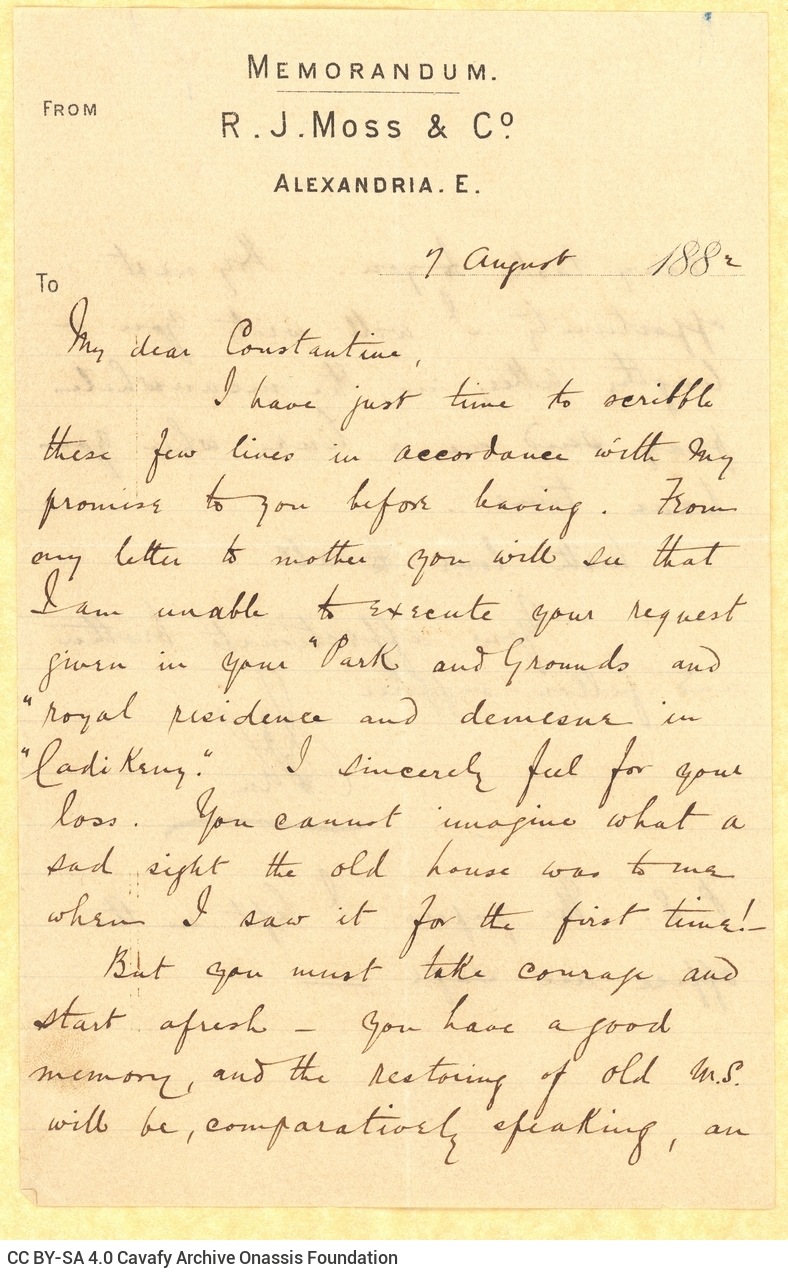 MEMORANDUM.
FROM
R. J. Moss & Cº
ALEXANDRIA. E.
7 August 1882
To
My dear Constantine,
I have just time to scribble
these few lines in accordance with my
promise to you before leaving. From
my letter to mother you will see that
I am unable to execute your request
given in your "Park and Grounds and
"royal residence and demesne in
"Cadi Keuy." I sincerely feel for your
loss. You cannot imagine what a
sad sight the old house was to me
when I saw it for the first time! –
But you must take courage and
start afresh – you have a good
memory, and the restoring of old M.S.
will be, comparatively speaking, an
CC BY-SA 4.0 Cavafy Archive Onassis Foundation